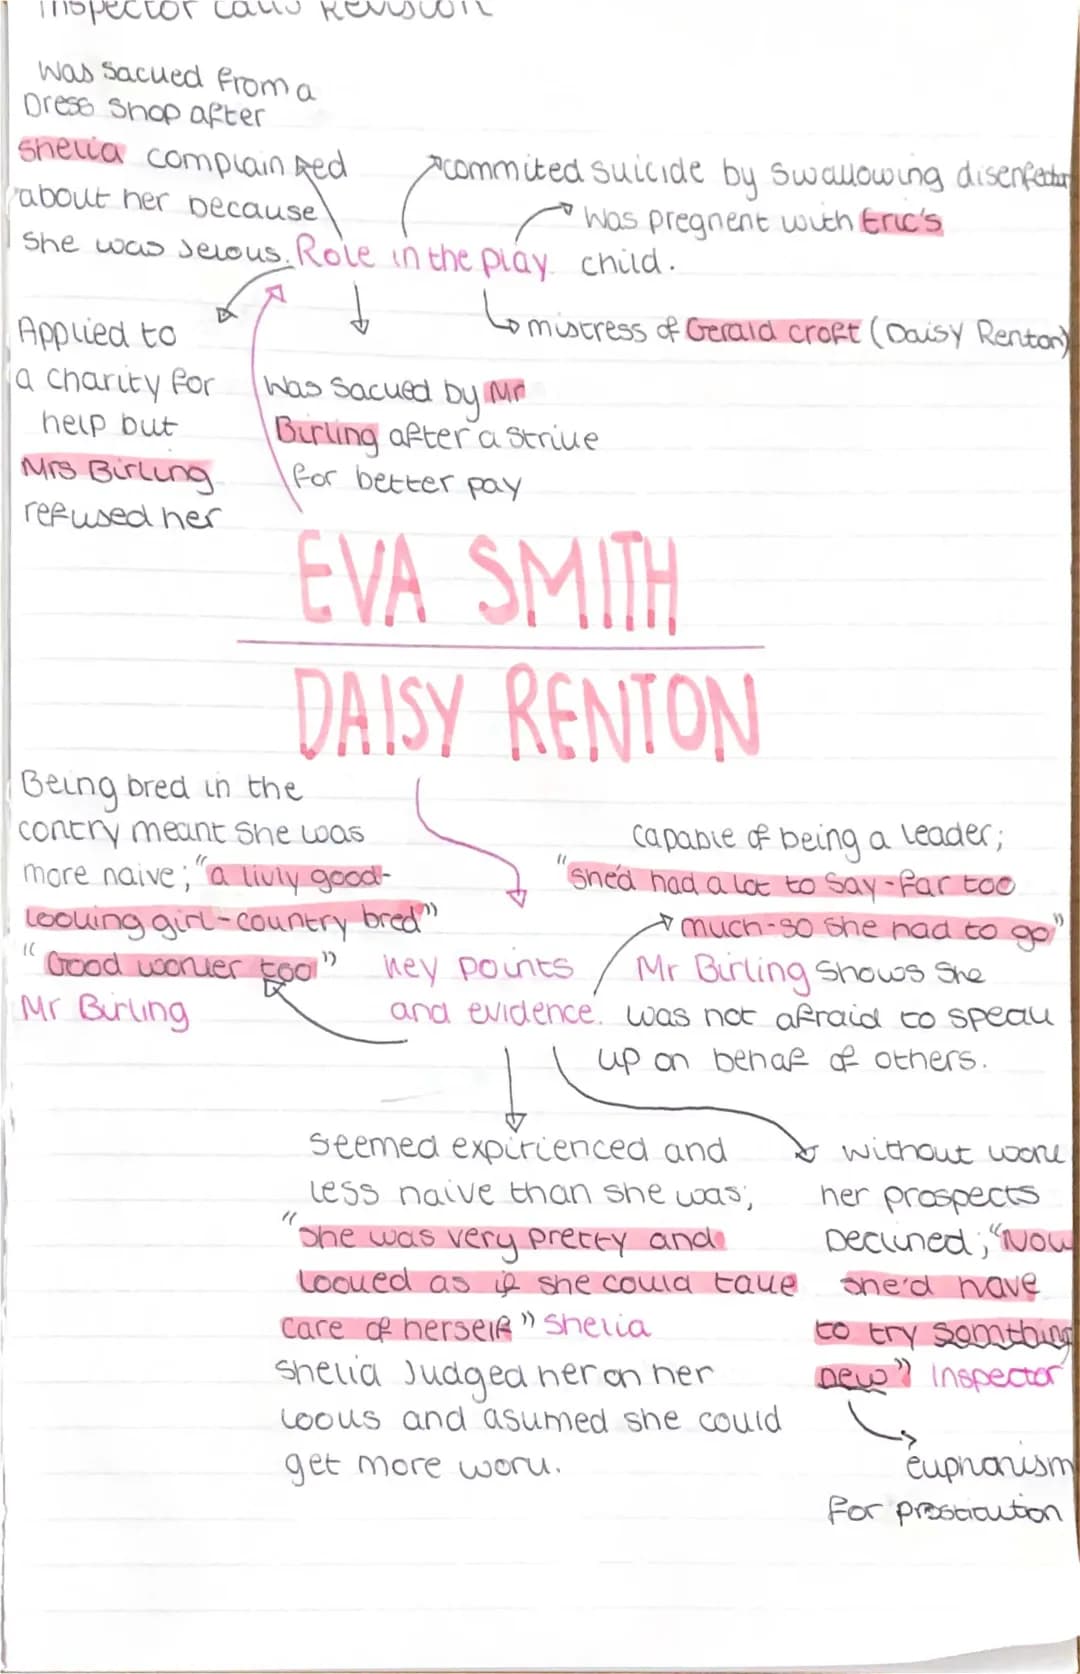 Inspector calls Revision
Was sacked from a
Dress Shop after
Shelia complained
about her because
She was Jelous.
commited suicide by swallowing disenfectur
Was pregnent with Eric's
child.
Role in the play
mistress of Gerald croft (Daisy Renton)
Applied to
a charity for
help but
Mrs Birling
refused her
Was Sacked by Mr
Birling after a strike
for better pay
EVA SMITH
DAISY RENTON
Being bred in the
contry meant she was
more naive; "a livly good-
looking girl-country bred"
"Good worker too"
Mr Birling
key points
and evidence.
capable of being a leader;
"she'd had a lot to say-far too
much-so she had to go"
Mr Birling shows she
was not afraid to speak
up on behaf of others.
seemed expirienced and
less naive than she was;
"she was very pretty and
looked as if she could take
care of herself" Shelia
Shelia Judged her on her
looks and asumed she could
get more work.
without work
her prospects
Declined; "Now
she'd have
to try somthing
new" Inspector
euphanism
for prostitution